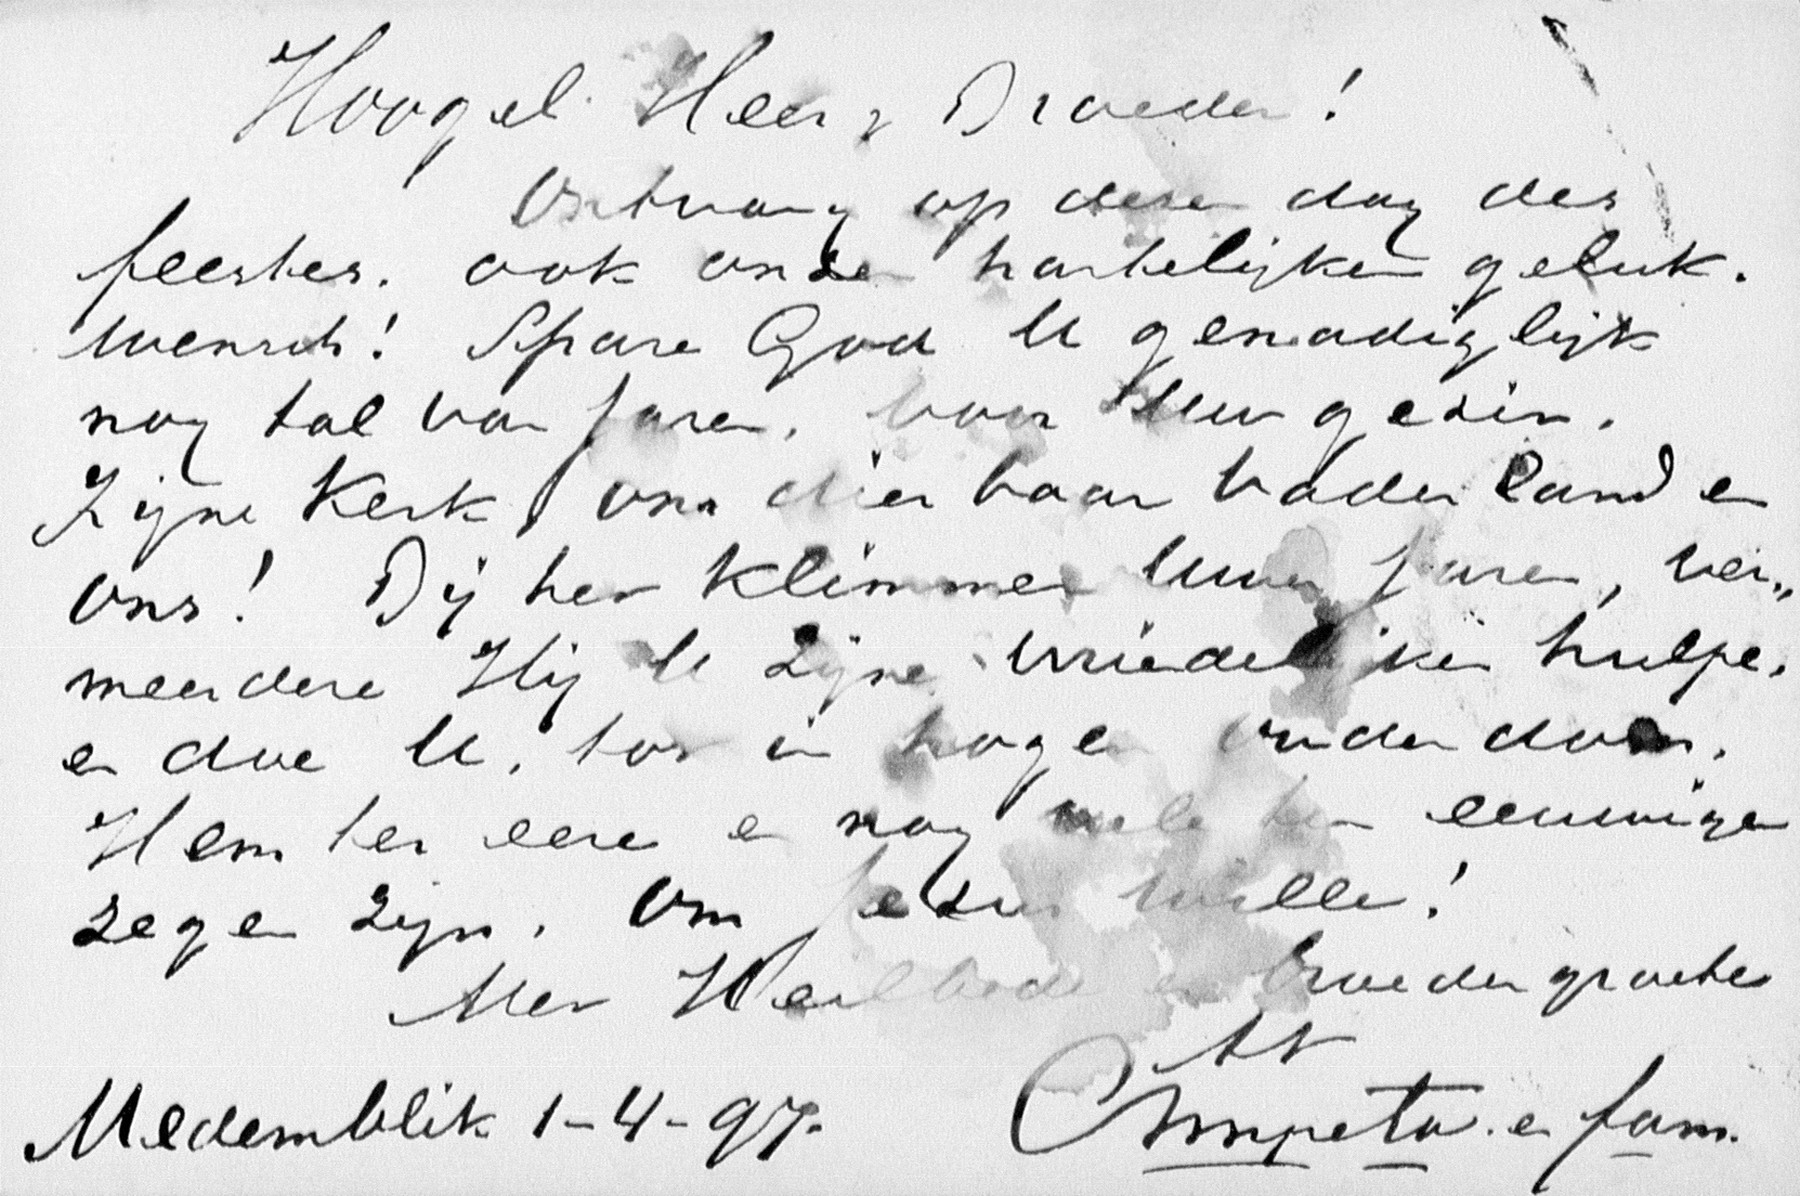 Hoogel. Heer & Broeder!
Ontvang op dezen dag des
feestes. ook onzen hartelijken geluk.
wensch! Spare God U genadiglijk
nog tal van jaren, voor Uw gezin,
Zijne Kerk, ons dierbaar Vaderland en
ons! Bij het klimmen Uwer jaren, ver„
meerdere Hij U Zijne vriendelijke hulpe,
en doe U, tot in hogen ouderdom,
Hem ter eere en nog velen ten eeuwigen
zegen zijn, om Jezus wille!
Met Heilbede en broedergroeten
Medemblik 1-4-97. en fam.